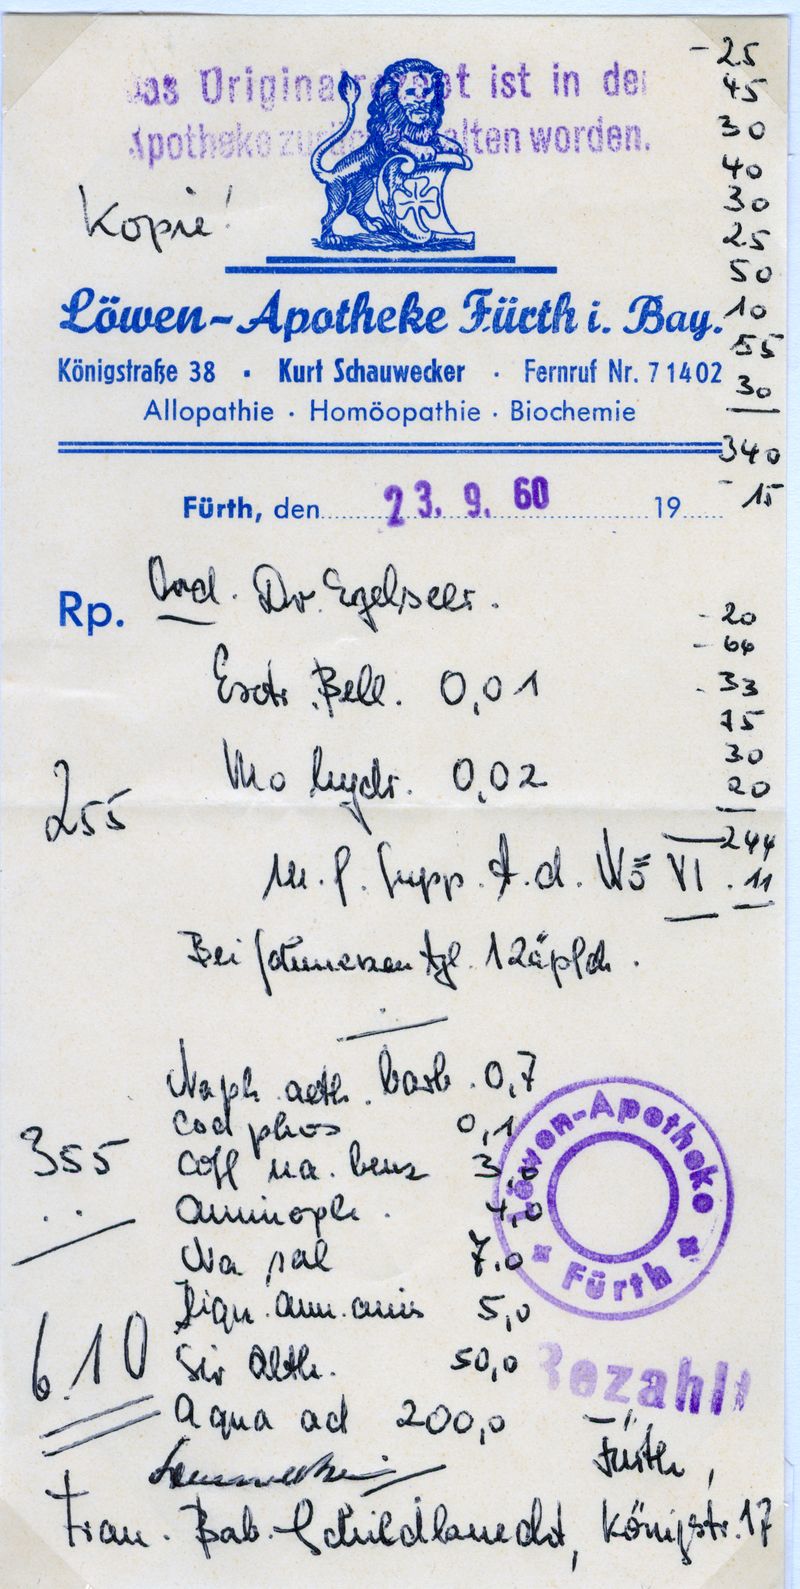 Das Originalrezept ist in der
Apotheke zurückbehalten worden.
Kopie!
Löwen-Apotheke Fürth i. Bay.
Königstraße 38 · Kurt Schauwecker · Fernruf Nr. 71402
Allopathie · Homöopathie · Biochemie
-25
45
30
40
30
25
50
10
55
30
340
15
Fürth, den 23. 9. 60 19
Rp. Ord. Dr. Egelseer.
Extr. Bell. 0,01
Mo hydr. 0,02
M. f. Supp. t. d. No VI
Bei Schmerzen tgl. 1 Zäpfch.
-20
-
- 33
75
30
20
244
. 11
255
Naph. aeth. barb. 0,7
Cod phos 0,1
Coff na. benz 3,0
Aminoph. 4,0
Na sal 7.0
Liqu. amm. anis 5,0
Sir Alth. 50,0
Aqua ad 200,0
355
6.10
Löwen-Apotheke
Fürth
Bezahlt
Fürth,
Frau. Bab. Schildknecht, Königstr. 17